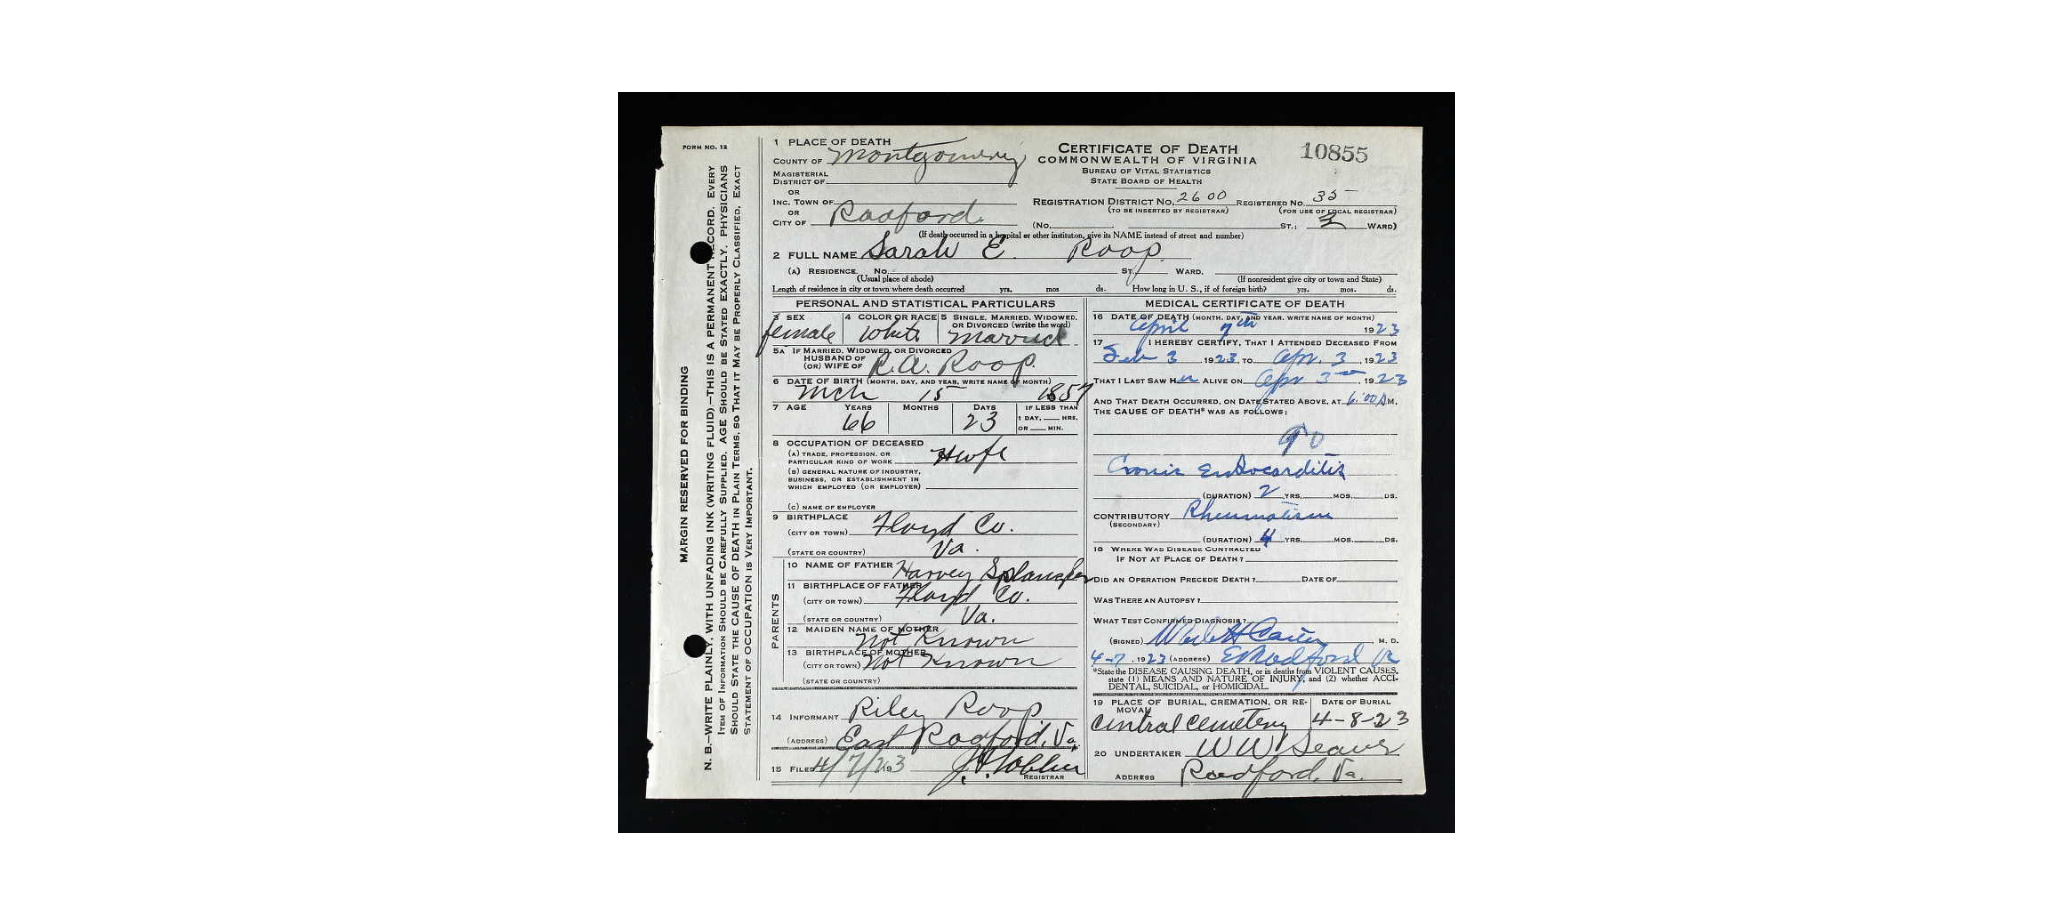 FORM NO. 12
MARGIN RESERVED FOR BINDING
N. B.—WRITE PLAINLY, WITH UNFADING INK (WRITING FLUID)—THIS IS A PERMANENT RECORD. EVERY
ITEM OF INFORMATION SHOULD BE CAREFULLY SUPPLIED. AGE SHOULD BE STATED EXACTLY. PHYSICIANS
SHOULD STATE THE CAUSE OF DEATH IN PLAIN TERMS, SO THAT IT MAY BE PROPERLY CLASSIFIED. EXACT
STATEMENT OF OCCUPATION IS VERY IMPORTANT.
1 PLACE OF DEATH
COUNTY OF Montgomery
MAGISTERIAL
DISTRICT OF
OR
INC. TOWN OF
OR
CITY OF Radford
CERTIFICATE OF DEATH
COMMONWEALTH OF VIRGINIA
BUREAU OF VITAL STATISTICS
STATE BOARD OF HEALTH
10855
REGISTRATION DISTRICT NO. 2600 REGISTERED NO. 35
(TO BE INSERTED BY REGISTRAR) (FOR USE OF LOCAL REGISTRAR)
(NO. ST.; WARD)
(If death occurred in a hospital or other institution, give its NAME instead of street and number)
2 FULL NAME Sarah E. Roop
(A) RESIDENCE. NO. ST. WARD.
(Usual place of abode) (If nonresident give city or town and State)
Length of residence in city or town where death occurred yrs. mos ds. How long in U. S., if of foreign birth? yrs. mos. ds.
PERSONAL AND STATISTICAL PARTICULARS
3 SEX 4 COLOR OR RACE 5 SINGLE, MARRIED, WIDOWED, OR DIVORCED (write the word)
female White Married
5A IF MARRIED, WIDOWED, OR DIVORCED
HUSBAND OF
(OR) WIFE OF R.A. Roop.
6 DATE OF BIRTH (MONTH, DAY, AND YEAR, WRITE NAME OF MONTH)
Mch 15 1857
7 AGE YEARS MONTHS DAYS IF LESS THAN
1 DAY, HRS.
OR MIN.
66 23
8 OCCUPATION OF DECEASED
(A) TRADE, PROFESSION, OR
PARTICULAR KIND OF WORK Hwfe
(B) GENERAL NATURE OF INDUSTRY,
BUSINESS, OR ESTABLISHMENT IN
WHICH EMPLOYED (OR EMPLOYER)
(C) NAME OF EMPLOYER
9 BIRTHPLACE
(CITY OR TOWN) Floyd Co.
(STATE OR COUNTRY) Va.
PARENTS
10 NAME OF FATHER Harvey
11 BIRTHPLACE OF FATHER
(CITY OR TOWN) Floyd Co.
(STATE OR COUNTRY) Va.
12 MAIDEN NAME OF MOTHER
Not Known
13 BIRTHPLACE OF MOTHER
(CITY OR TOWN) Not Known
(STATE OR COUNTRY)
14 INFORMANT Riley Roop
(ADDRESS) East Radford, Va.
15 FILED 4/7/1923
REGISTRAR
MEDICAL CERTIFICATE OF DEATH
16 DATE OF DEATH (MONTH, DAY, AND YEAR. WRITE NAME OF MONTH)
April 7th 1923
17 I HEREBY CERTIFY, THAT I ATTENDED DECEASED FROM
Feb 3 1923 TO Apr. 3 1923
THAT I LAST SAW Her ALIVE ON Apr 3rd, 1923
AND THAT DEATH OCCURRED, ON DATE STATED ABOVE, AT 6:00 A M.
THE CAUSE OF DEATH* WAS AS FOLLOWS:
90
Cronic Endocarditis
(DURATION) 2 YRS. MOS. DS.
CONTRIBUTORY Rheumatism
(SECONDARY)
(DURATION) 4 YRS. MOS. DS.
18 WHERE WAS DISEASE CONTRACTED
IF NOT AT PLACE OF DEATH?
DID AN OPERATION PRECEDE DEATH? DATE OF
WAS THERE AN AUTOPSY?
WHAT TEST CONFIRMED DIAGNOSIS?
(SIGNED) M. D.
4-7, 1923 (ADDRESS) E Radford Va
*State the DISEASE CAUSING DEATH, or in deaths from VIOLENT CAUSES,
state (1) MEANS AND NATURE OF INJURY, and (2) whether ACCI-
DENTAL, SUICIDAL, or HOMICIDAL.
19 PLACE OF BURIAL, CREMATION, OR RE-
MOVAL DATE OF BURIAL
Central Cemetery 4-8-23
20 UNDERTAKER W W
ADDRESS Radford, Va.